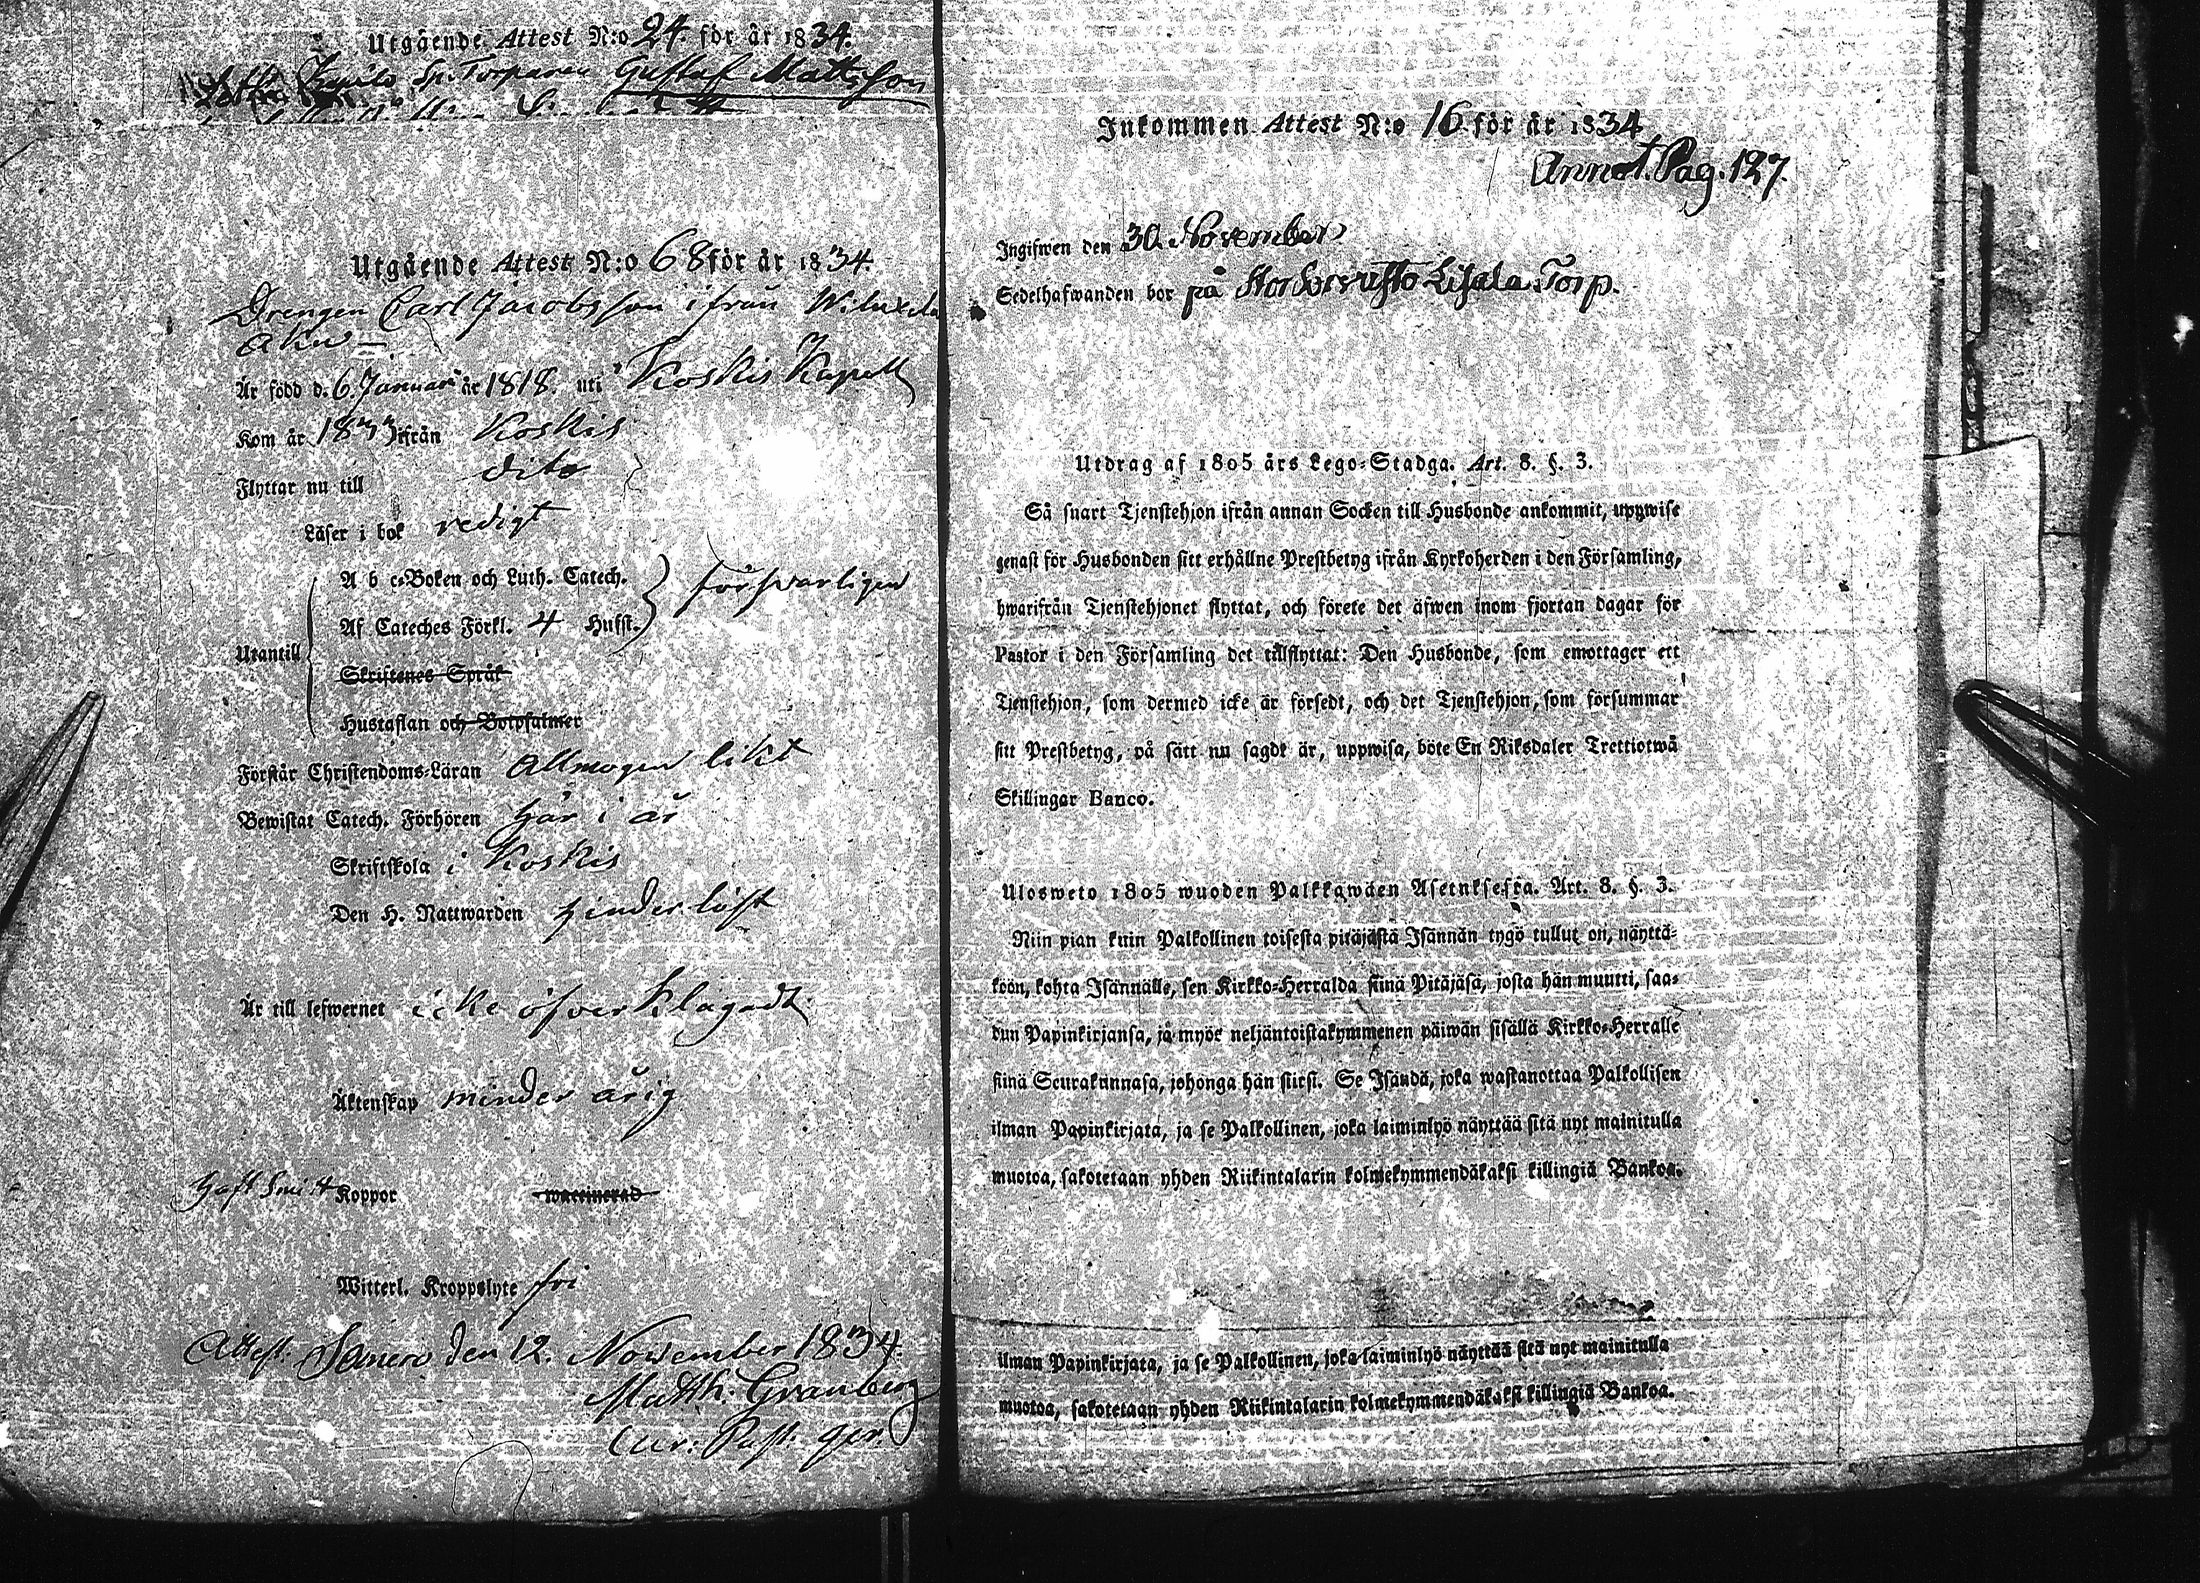 Utgående Attest N:o 24. för år 1834.
Torparen Gustaf Mattsson
Utgående Attest N:o 68 för år 1834.
Drengen Carl Jacobsson ifrån
Är född d. 6. Januari år 1818. uti Koskis Kapell
Kom år 1833 ifrån Koskis
Flyttar nu till dito
Läser i bok redigt
A b c-Boken och Luth. Catech.
försvarligen
Af Cateches Förkl. 4 Hufst.
Utantill
Skriftenes Språk
Hustaflan och Botpsalmer
Förstår Christendoms-Läran Allmogen likt
Bewistat Catech. Förhören här i år
Skriftskola i Koskis
Den H. Nattwarden hinderlöst
Är till lefwernet icke öfverklagadt.
Äktenskap minderårig
Haft Smitt Koppor waccinerad
Witterl. Kroppslyte fri
Attest. Somero den 12. November 1834.
Matth: Granberg
Inkommen Attest N:o 16 för år 1834
Annot. Pag. 127.
Ingifwen den 30. November
Sedelhafwanden bor på Torp.
Utdrag af 1805 års Lego-Stadga. Art. 8. §. 3.
Så snart Tjenstehjon ifrån annan Socken till Husbonde ankommit, uppwise
genast för Husbonden sitt erhållne Prestbetyg ifrån Kyrkoherden i den Församling,
hwarifrån Tjenstehjonet flyttat, och förete det äfwen inom fjortan dagar för
Pastor i den Församling det tillflyttat: Den Husbonde, som emottager ett
Tjenstehjon, som dermed icke är försedt, och det Tjenstehjon, som försummar
sitt Prestbetyg, på sätt nu sagdt är, uppwisa, böte En Riksdaler Trettiotwå
Skillingar Banco.
Ulosweto 1805 wuoden Palkkawäen Asetuksesta. Art. 8. §. 3.
Niin pian kuin Palkollinen toisesta pitäjästä Isännän tygö tullut on, näyttä-
köön, kohta Isännälle, sen Kirkko-Herralda siinä Pitäjäsä, josta hän muutti, saa-
dun Papinkirjansa, ja myös neljäntoistakymmenen päiwän sisällä Kirkko-Herralle
siinä Seurakunnasa, johonga hän siirsi. Se Isändä, joka wastanottaa Palkollisen
ilman Papinkirjata, ja se Palkollinen, joka laiminlyö näyttää sitä nyt mainitulla
muotoa, sakotetaan yhden Riikintalarin kolmekymmendäkaksi killingiä Bankoa.
ilman Papinkirjata, ja se Palkollinen, joka laiminlyö näyttää sitä nyt mainitulla
muotoa, sakotetaan yhden Riikintalarin kolmekymmendäkaksi killingiä Bankoa.